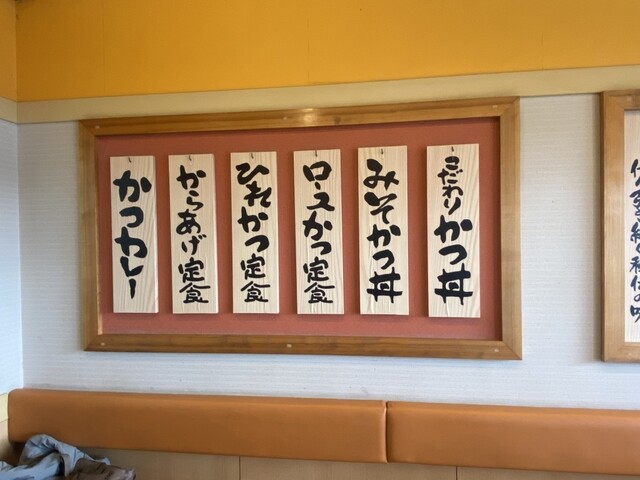 こだわりかつ丼
みそかつ丼
ロースかつ定食
ひれかつ定食
からあげ定食
かつカレー